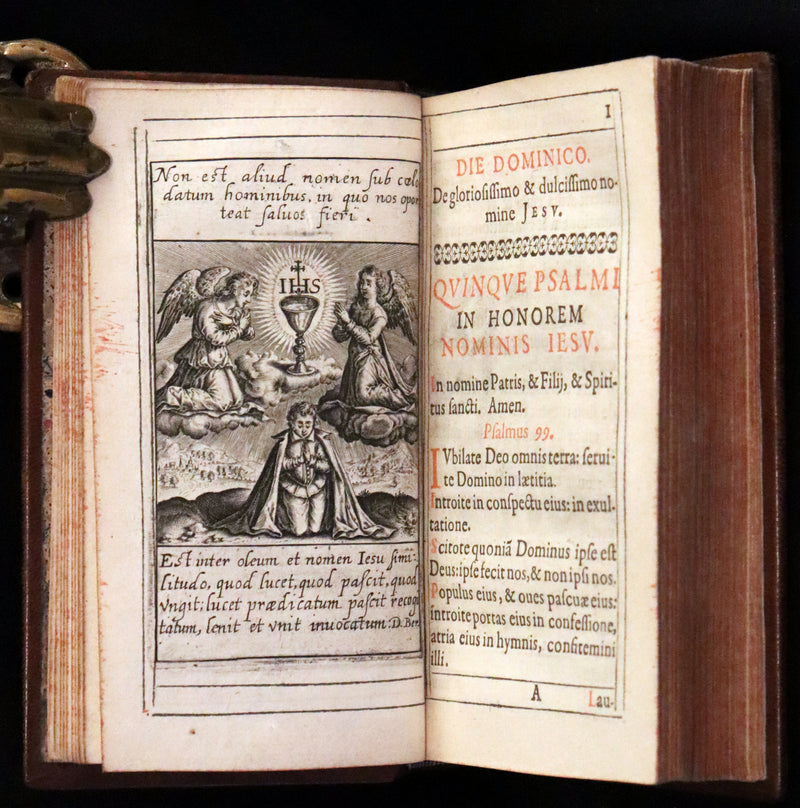 Non est aliud nomen sub cœlo
datum hominibus, in quo nos opor
teat saluos fieri.
IHS
Est inter oleum et nomen Iesu simi:
litudo, quod lucet, quod pascit, quod
vngit: lucet prædicatum pascit recogi
tatum, lenit et vnit inuocatum: D. Ber.
1
DIE DOMINICO.
De gloriosissimo & dulcissimo no-
mine JESV.
QVINQVE PSALMI
IN HONOREM
NOMINIS IESV.
In nomine Patris, & Filij, & Spiri-
tus sancti. Amen.
Psalmus 99.
IVbilate Deo omnis terra: serui-
te Domino in lætitia.
Introite in conspectu eius: in exul-
tatione.
Scitote quoniã Dominus ipse est
Deus: ipse fecit nos, & non ipsi nos.
Populus eius, & oues pascuæ eius:
introite portas eius in confessione,
atria eius in hymnis, confitemini
illi.
A
Lau-